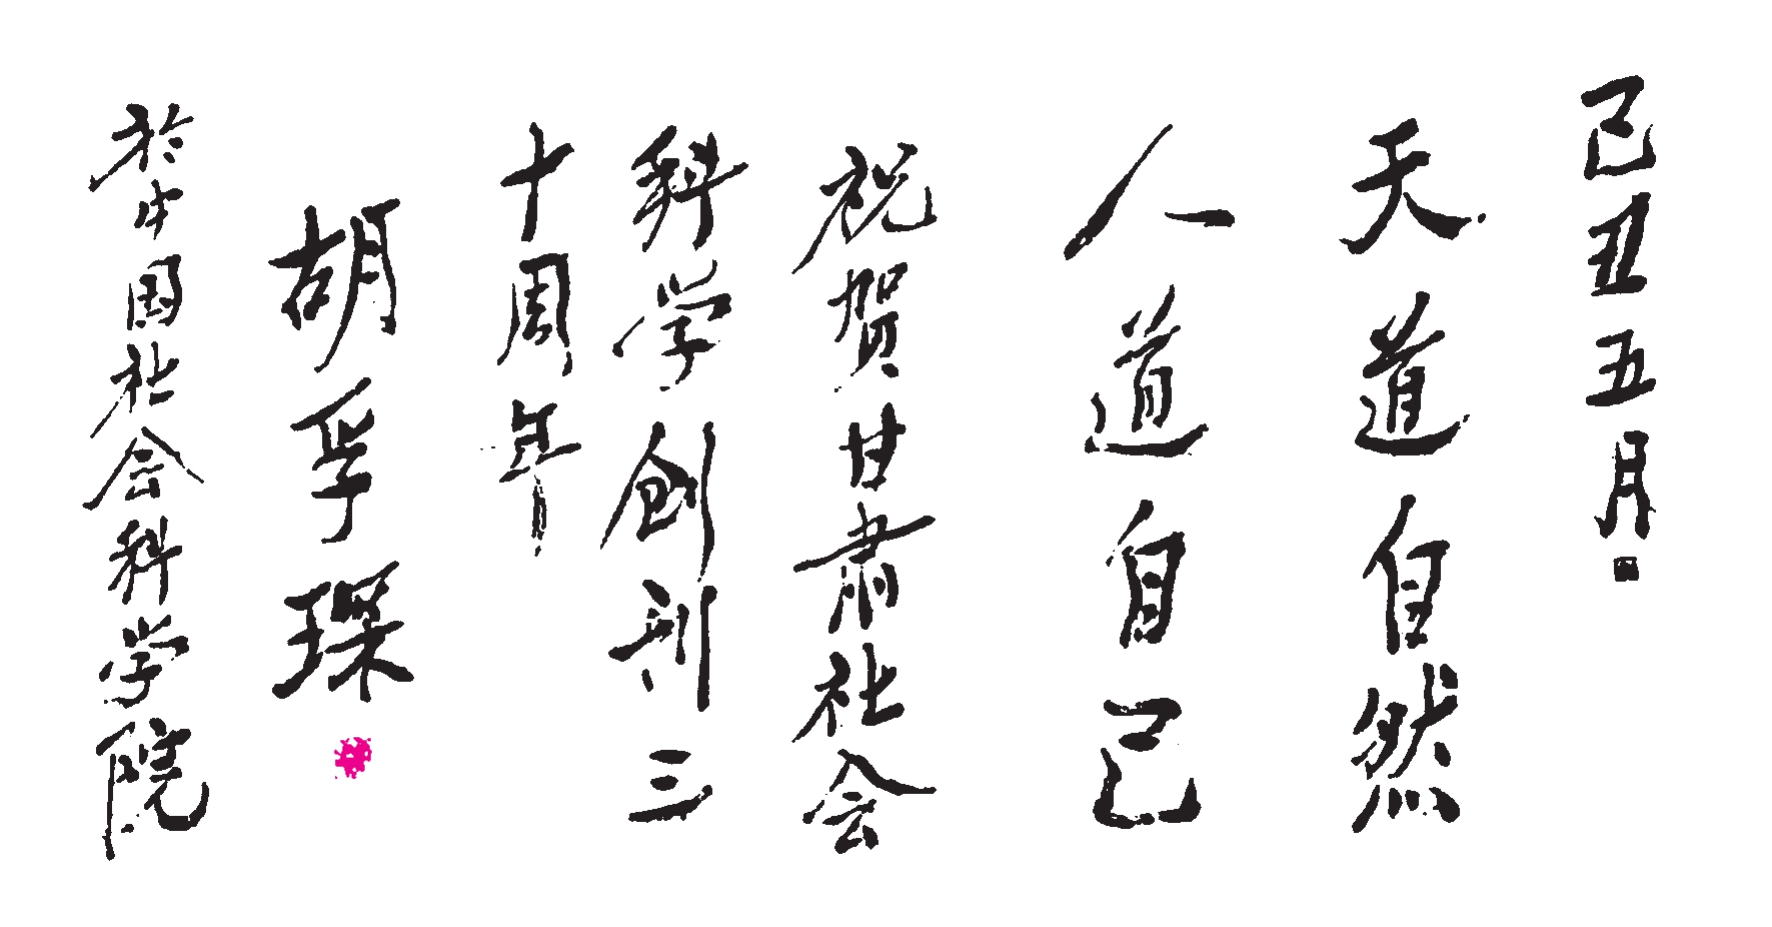 己丑五月
天道自然
人道自己
祝贺甘肃社会
科学创刊三
十周年
胡孚琛
於中国社会科学院